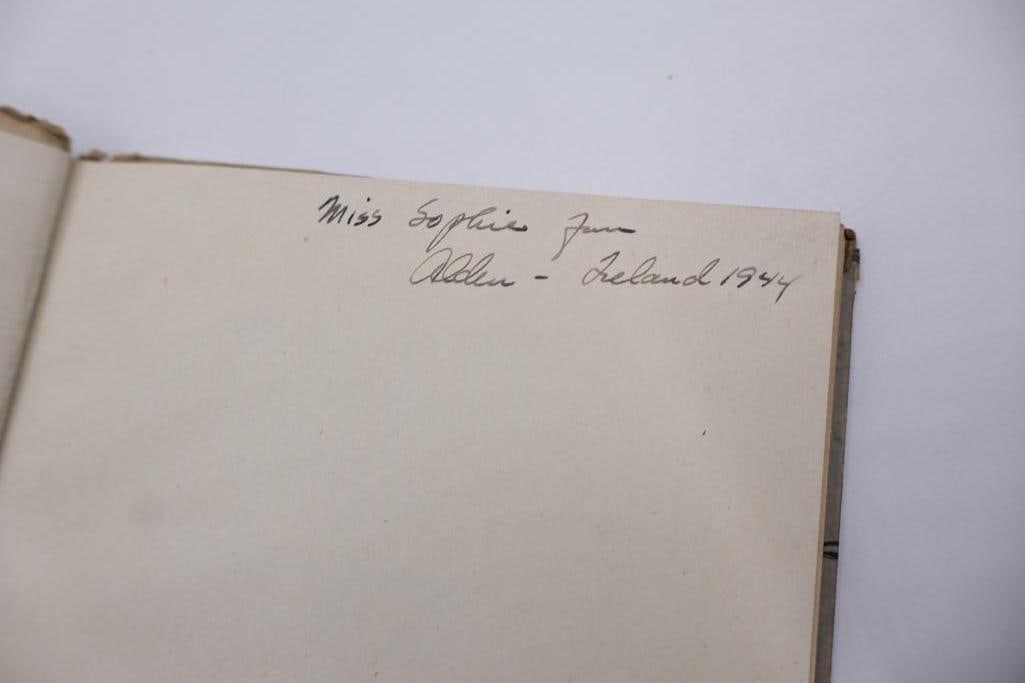 Miss Sophie
Alden - Ireland 1944